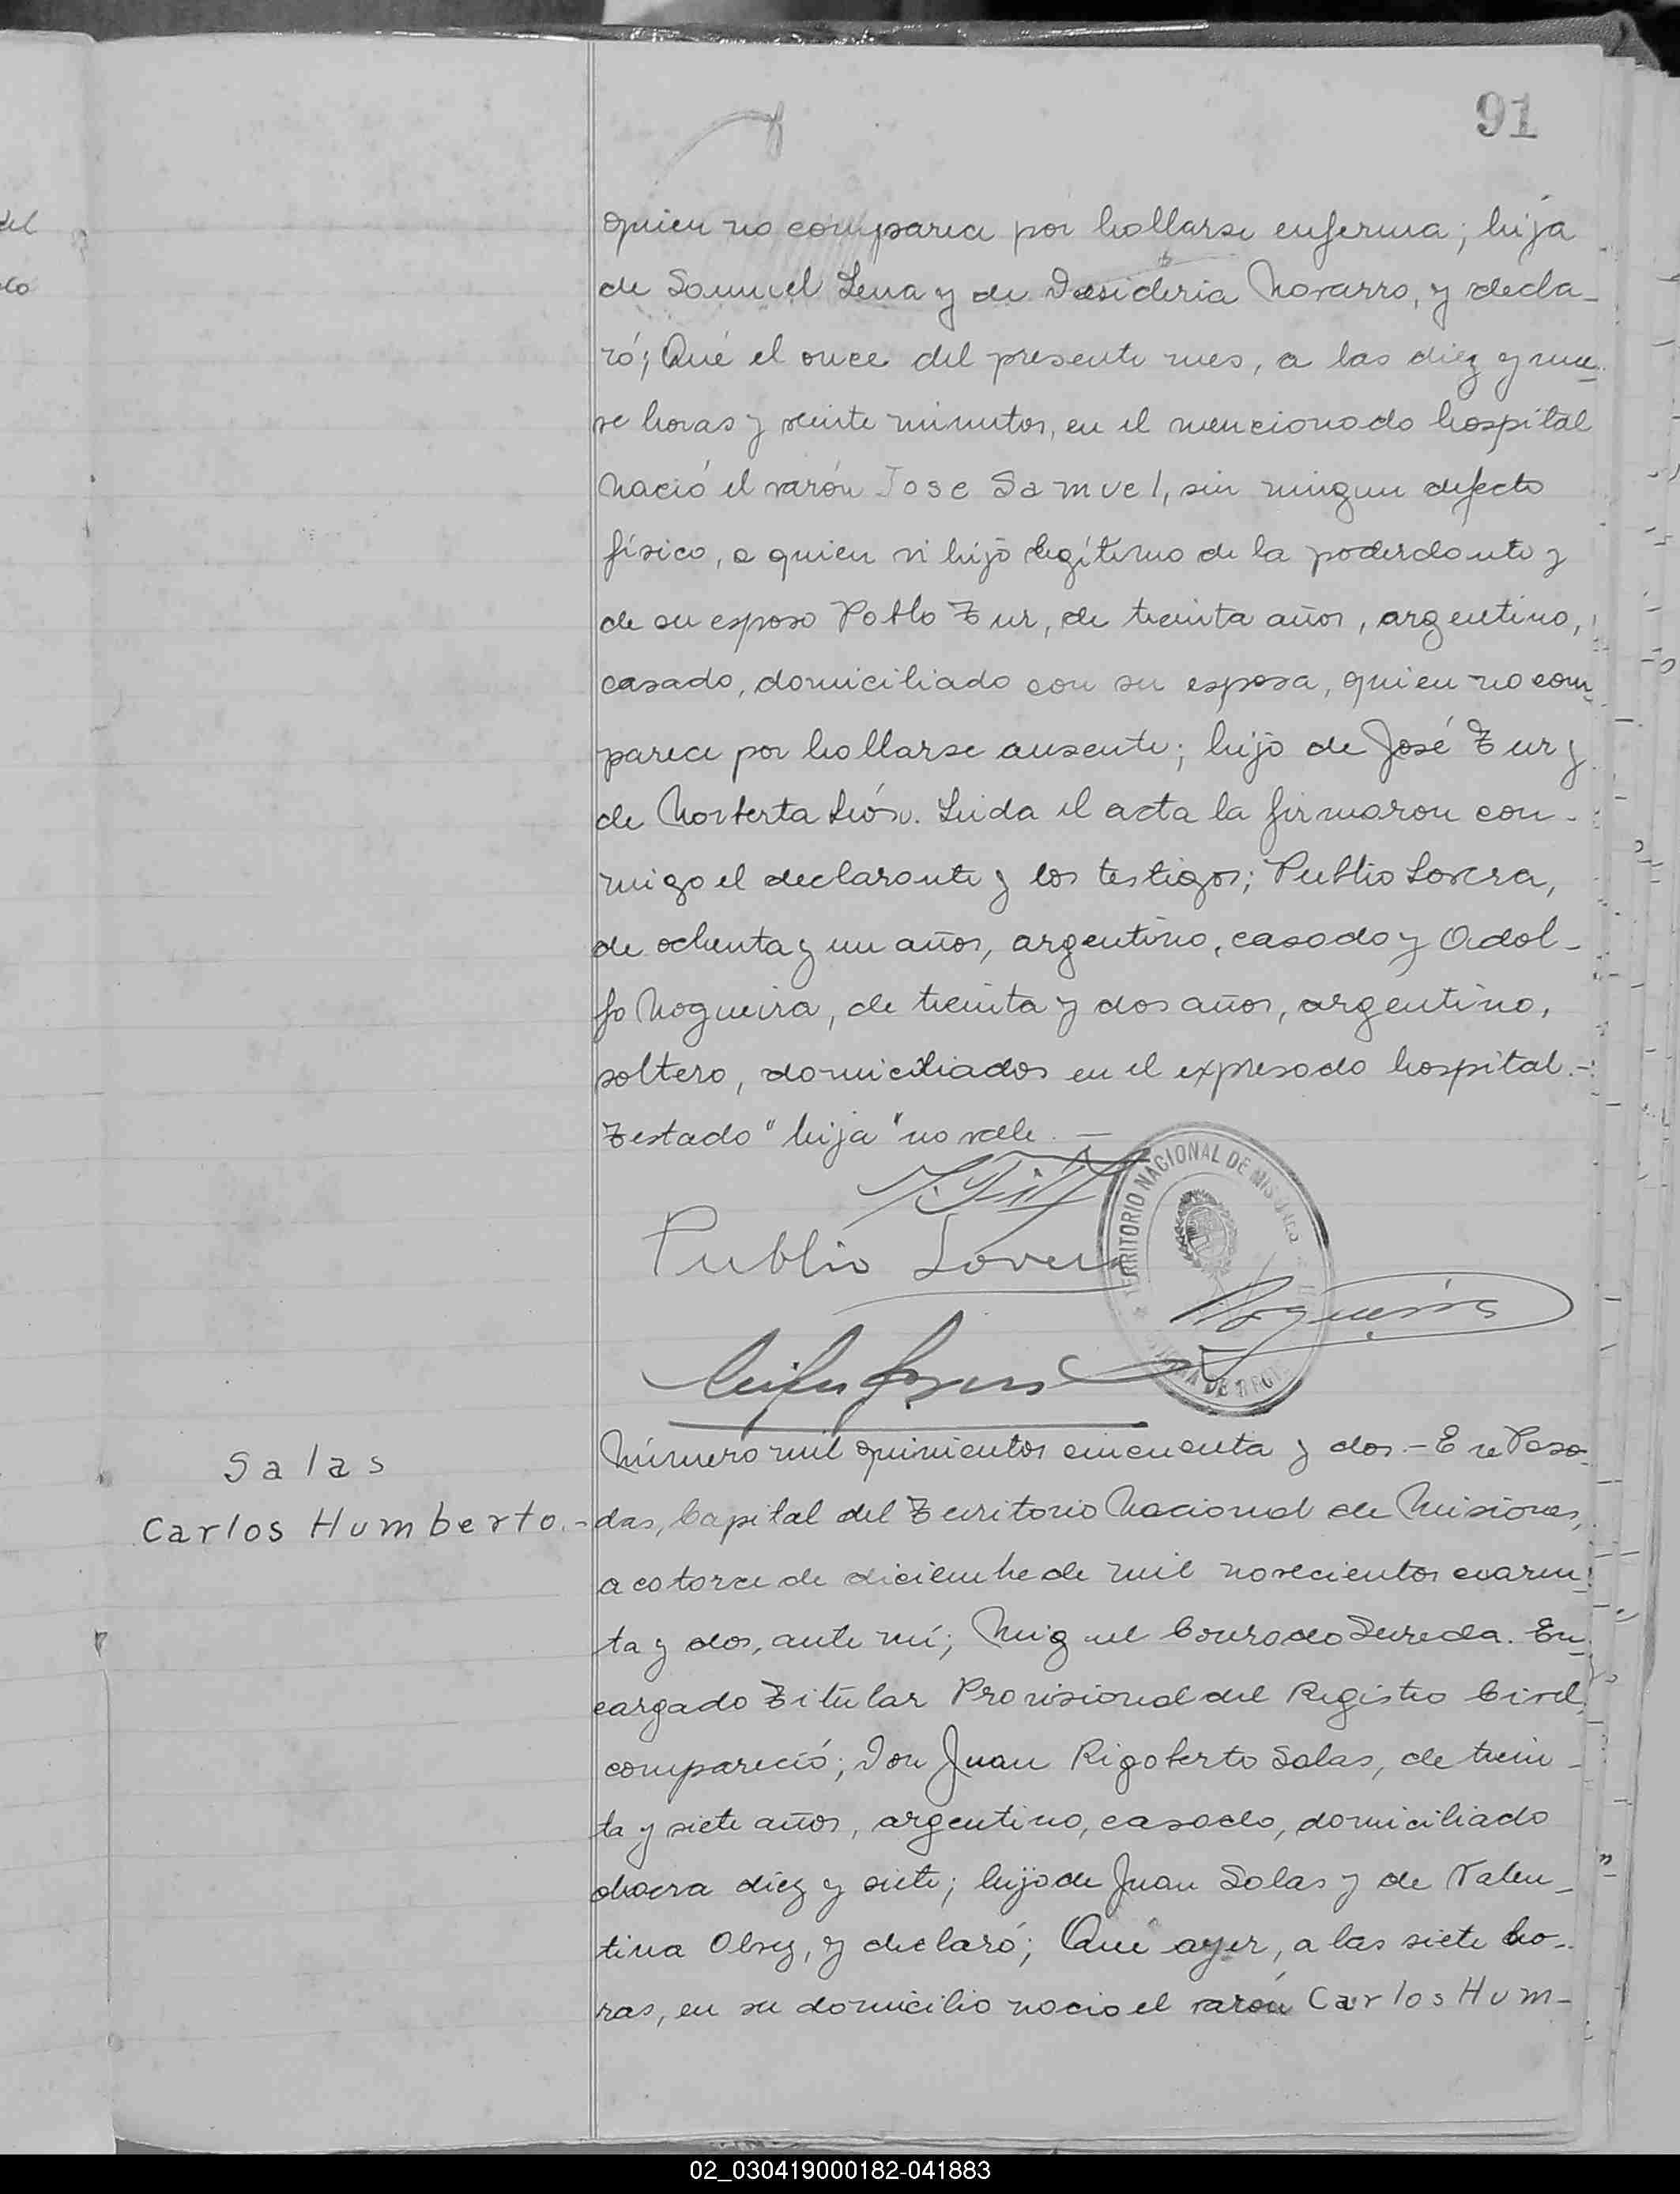 91
del
quien no comparece por hallarse enferma; hija
de Samuel Lena y de Desideria Navarro, y decla-
ró; Qué el once del presente mes, a las diez y nue-
ve horas y veinte minutos, en el mencionado hospital
nació el varón Jose Samuel, sin ningun defecto
físico, a quien vi hijo legítimo de la poderdante y
de su esposo Pablo Zur, de treinta años, argentino,
casado, domiciliado con su esposa, quien no com-
parece por hallarse ausente; hijo de José Zur y
de Norberta León. Leida el acta la firmaron con-
migo el declarante y los testigos; Publio Lovera,
de ochenta y un años, argentino, casado y Adol-
fo Nogueira, de treinta y dos años, argentino,
soltero, domiciliados en el expresado hospital.-
Testado "hija" no vale. —
TERRITORIO NACIONAL DE MISIONES
Publio Lovera
Nogueira
Salas
Carlos Humberto.-
Número mil quinientos cincuenta y dos.- En Posa-
das, Capital del Territorio Nacional de Misiones,
a catorce de diciembre de mil novecientos cuaren-
ta y dos, ante mí; Miguel Conrado Sureda. En-
cargado Titular Provisional del Registro Civil,
compareció; Don Juan Rigoberto Salas, de trein-
ta y siete años, argentino, casado, domiciliado
chacra diez y siete; hijo de Juan Salas y de Valen-
tina , y declaró; Qué ayer, a las siete ho-
ras, en su domicilio nacio el varón Carlos Hum-
02_030419000182-041883